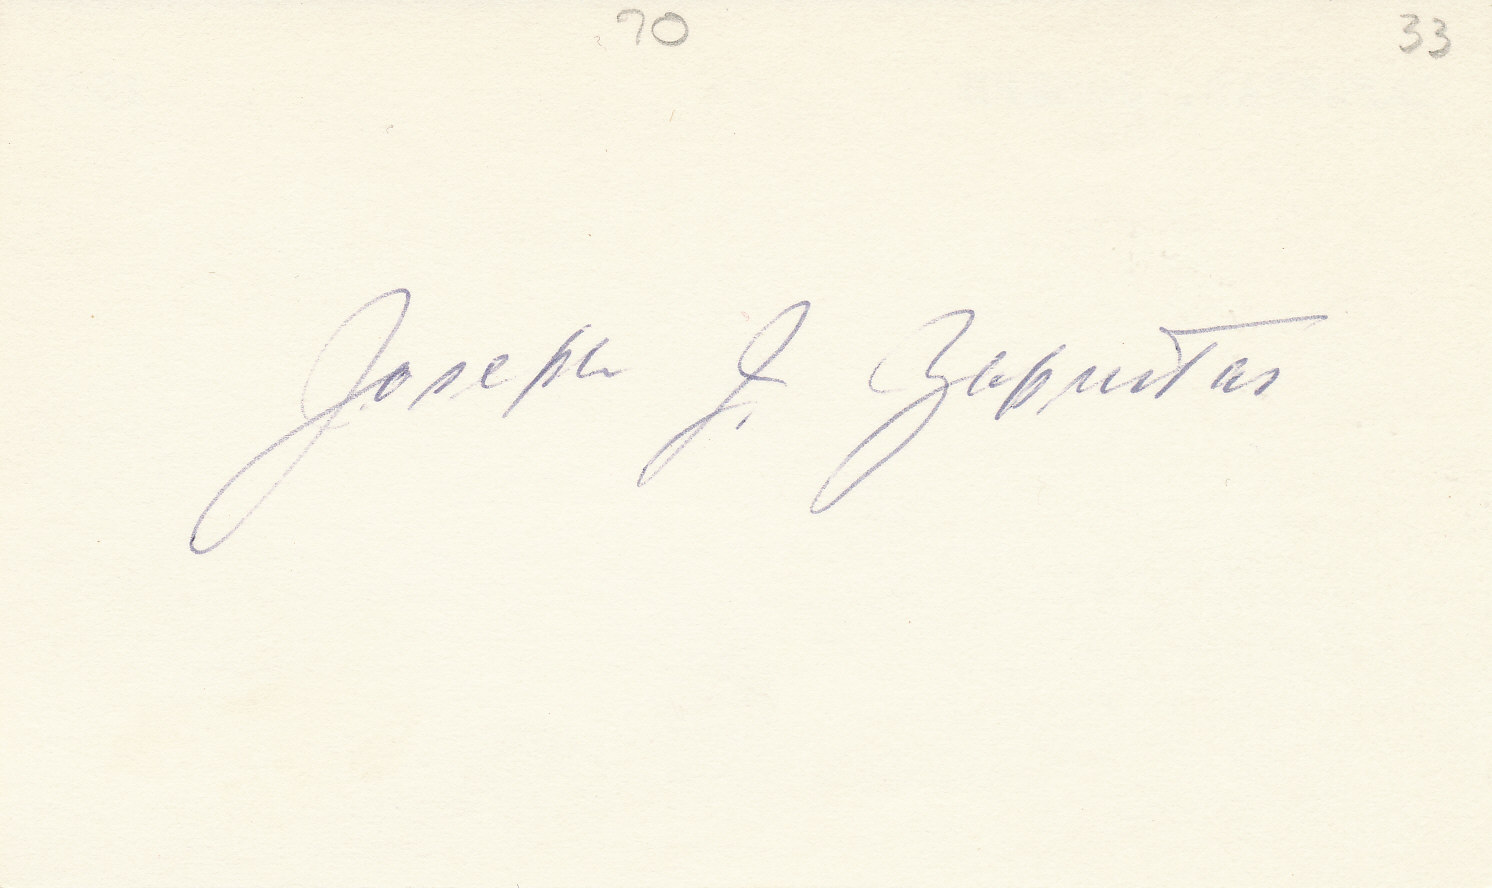 70 33
Joseph J. Zapustas